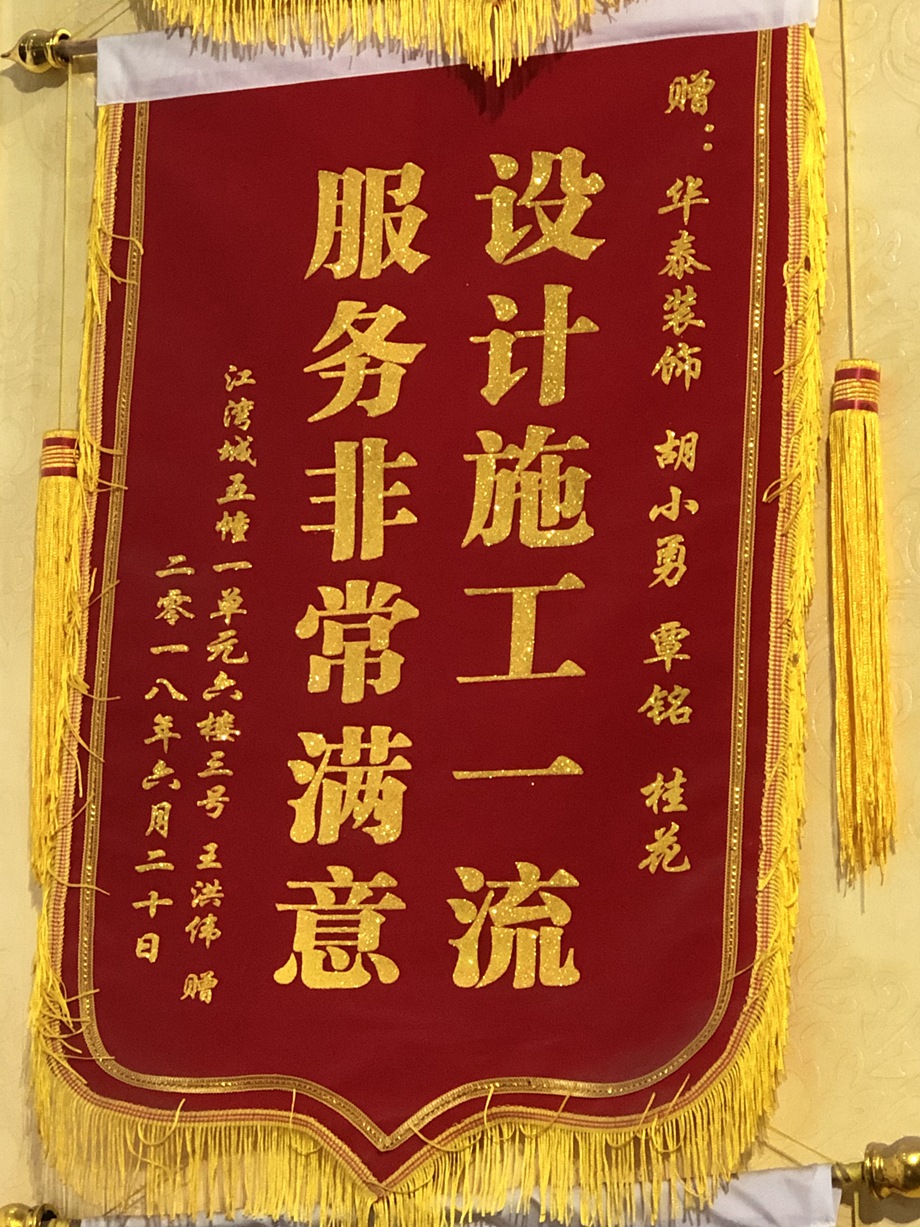 赠：华泰装饰 胡小勇 覃铭 桂花
设计施工一流
服务非常满意
江湾城五幢一单元六楼三号 王洪伟 赠
二零一八年六月二十日